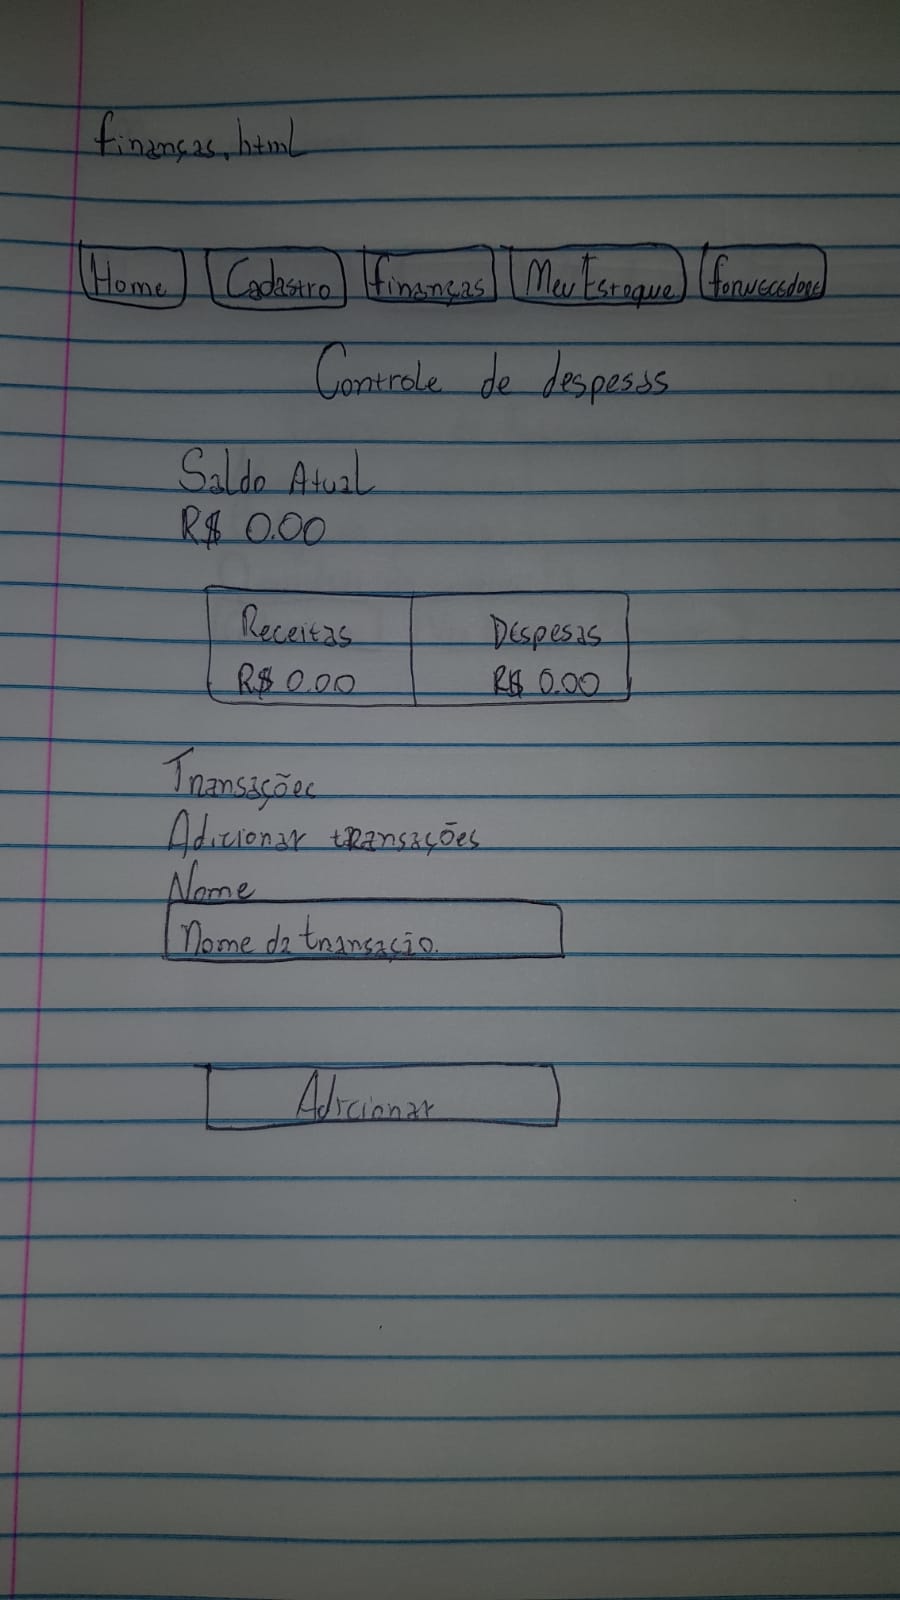 finanças.html
Home Cadastro finanças Meu Estoque fornecedore
Controle de despesas
Saldo Atual
R$ 0.00
Receitas Despesas
R$ 0.00 R$ 0.00
Transações
Adicionar transações
Nome
Nome da transação.
Adicionar